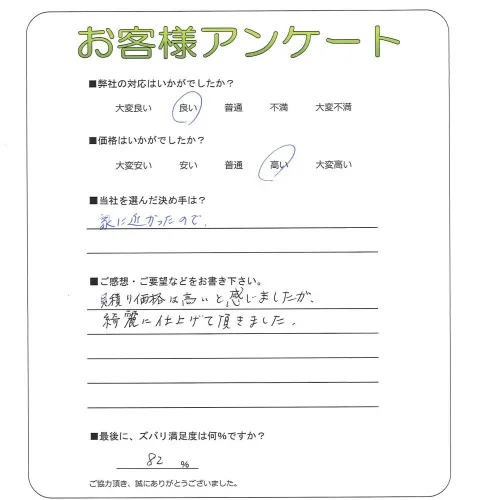 お客様アンケート
■弊社の対応はいかがでしたか？
大変良い 良い 普通 不満 大変不満
■価格はいかがでしたか？
大変安い 安い 普通 高い 大変高い
■当社を選んだ決め手は？
家に近かったので、
■ご感想・ご要望などをお書き下さい。
見積り価格は高いと感じましたが、
綺麗に仕上げて頂きました。
■最後に、ズバリ満足度は何%ですか？
82 %
ご協力頂き、誠にありがとうございました。